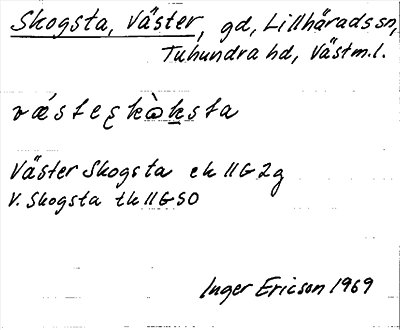 Skogsta, Väster, gd, Lillhärads sn,
Tuhundra hd, Västm.l.
Väster Skogsta ek 11G2g
V. Skogsta tk 11G SO
Inger Ericson 1969